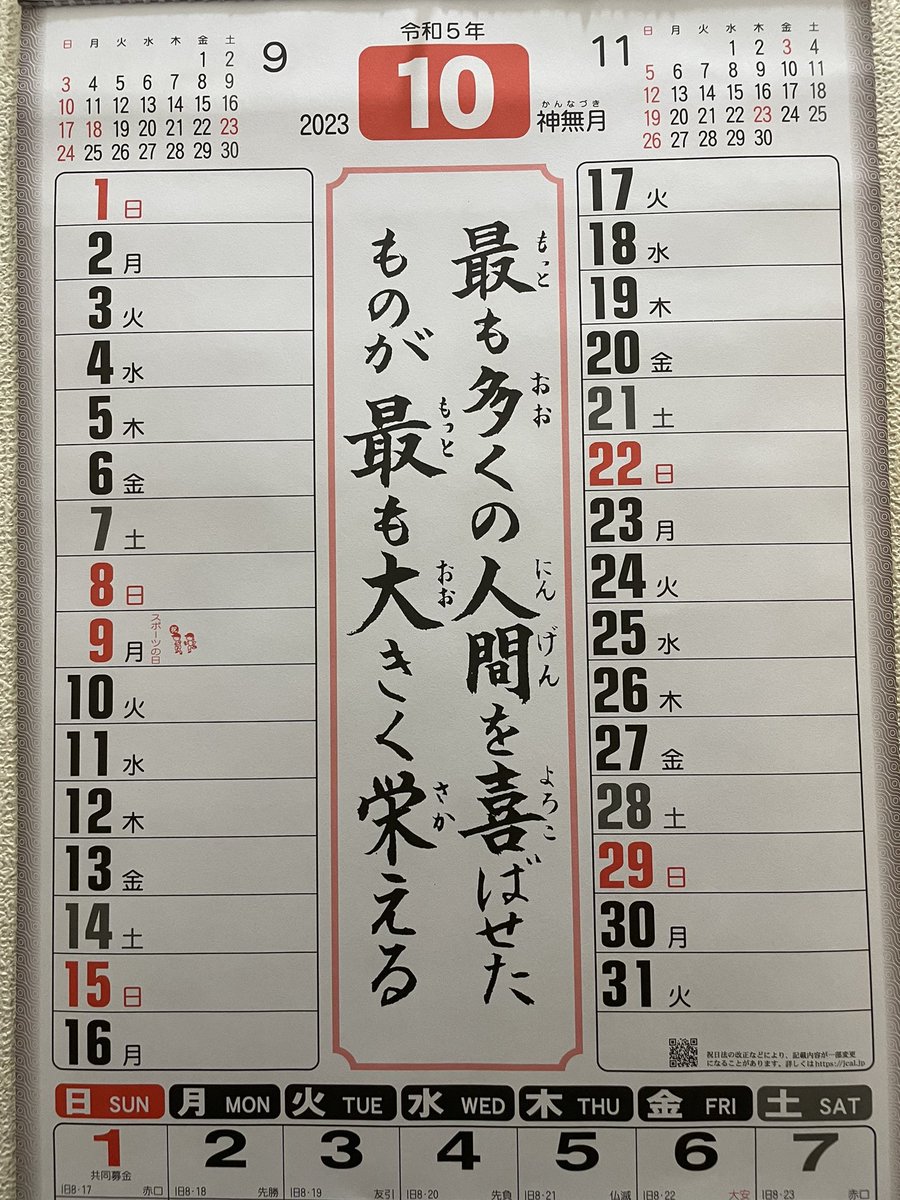 令和5年
10
2023
神無月
かんなづき
9
日 月 火 水 木 金 土
1 2
3 4 5 6 7 8 9
10 11 12 13 14 15 16
17 18 19 20 21 22 23
24 25 26 27 28 29 30
11
日 月 火 水 木 金 土
1 2 3 4
5 6 7 8 9 10 11
12 13 14 15 16 17 18
19 20 21 22 23 24 25
26 27 28 29 30
1 日
2 月
3 火
4 水
5 木
6 金
7 土
8 日
9 月 スポーツの日
10 火
11 水
12 木
13 金
14 土
15 日
16 月
最も多くの人間を喜ばせた
もっと おお にん げん よろこ
ものが最も大きく栄える
もっと おお さか
17 火
18 水
19 木
20 金
21 土
22 日
23 月
24 火
25 水
26 木
27 金
28 土
29 日
30 月
31 火
祝日法の改正などにより、記載内容が一部変更
になることがあります。詳しくはhttps://jcal.jp
日 SUN 月 MON 火 TUE 水 WED 木 THU 金 FRI 土 SAT
1 2 3 4 5 6 7
共同募金
旧8・17 赤口 旧8・18 先勝 旧8・19 友引 旧8・20 先負 旧8・21 仏滅 旧8・22 大安 旧8・23 赤口